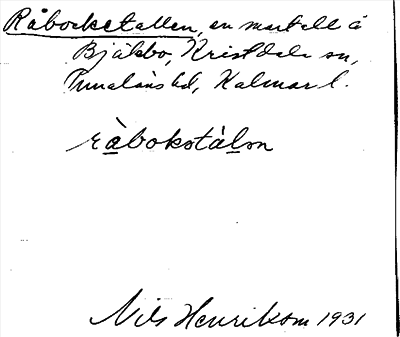 Råbocketallen, en martall å
Bjälebo, Kristdala sn,
Tunaläns hd, Kalmar l.
ràbokɷtàlɷn
Nils Henrikson 1931